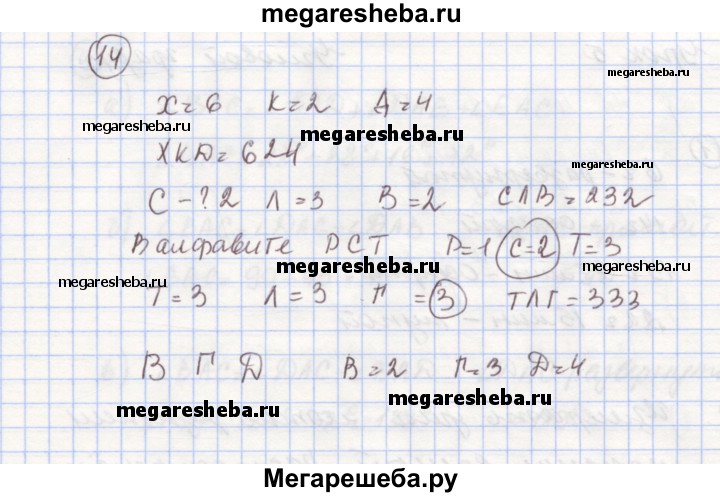 megaresheba.ru
14
X=6 K=2 Д=4
megaresheba.ru
megaresheba.ru
megaresheba.ru
ХКД=624
megaresheba.ru
С-? 2 Л=3 В=2 СЛВ=232
В алфавите РСТ Р=1 С=2 Т=3
megaresheba.ru
megaresheba.ru
megaresheba.ru
Т=3 Л=3 Г =3 ТЛГ=333
В Г Д В=2 Г=3 Д=4
megaresheba.ru
megaresheba.ru
Мегарешеба.ру